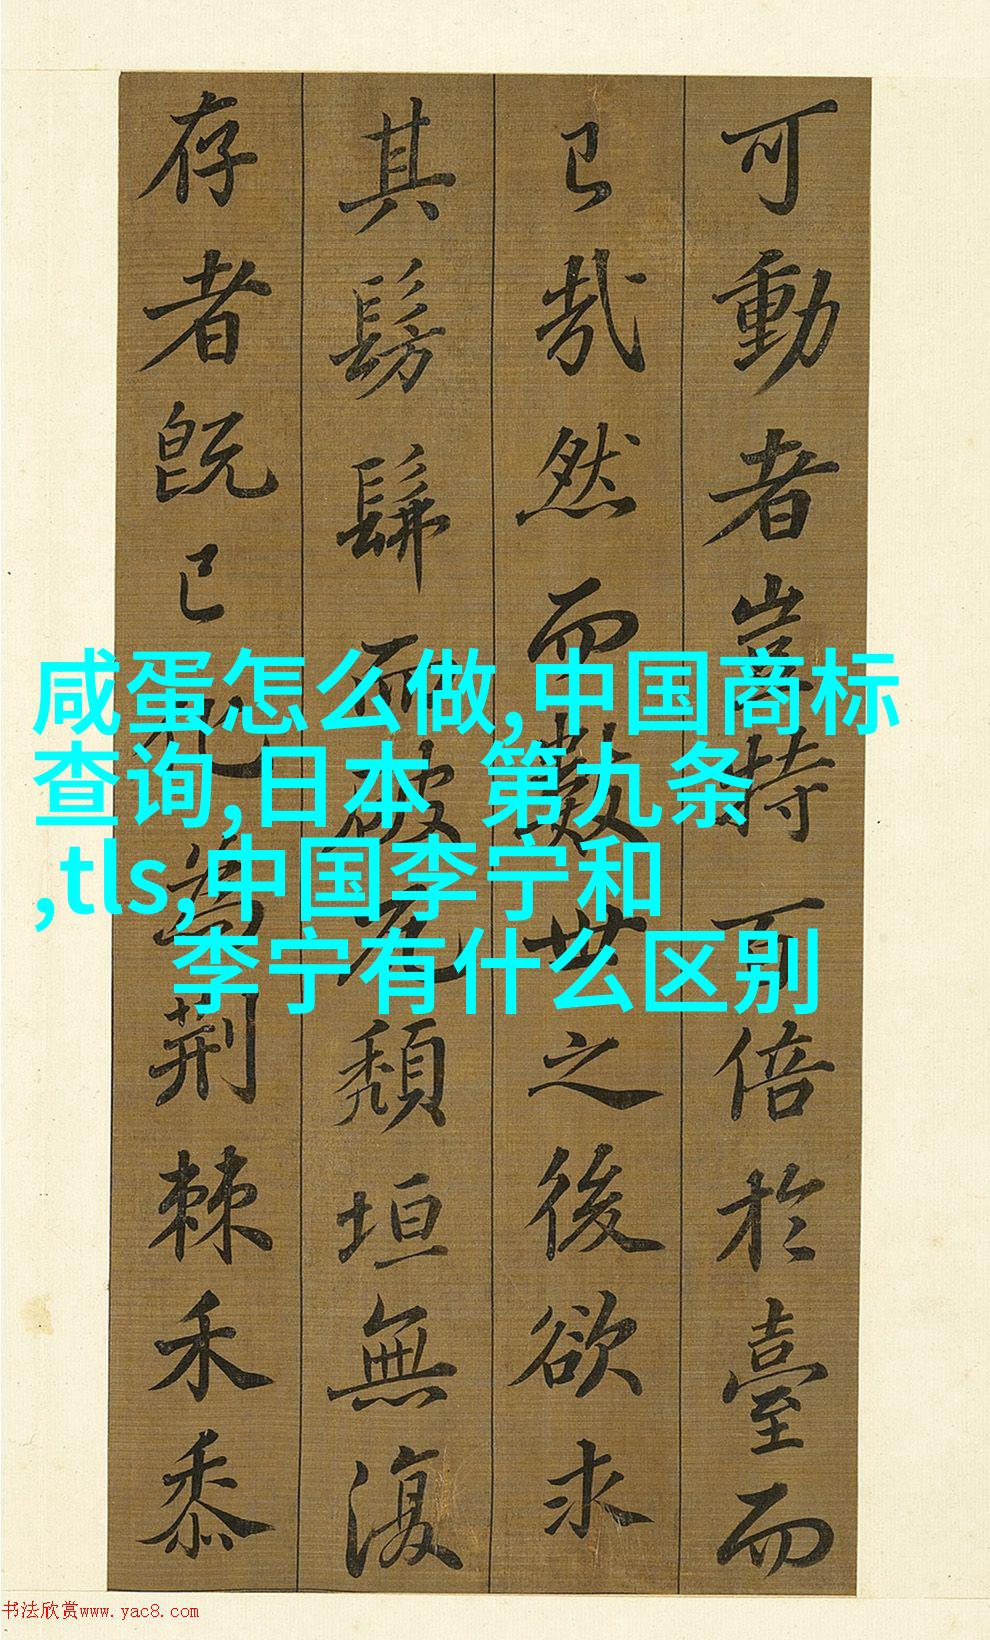 可動者豈特百倍於臺而
已哉然而數世之後欲求
其髣髴而破瓦頹垣無復
存者既已化為荆棘禾黍
咸蛋怎么做,中国商标
查询,日本 第九条
,tls,中国李宁和
李宁有什么区别
书法欣赏www.yac8.com